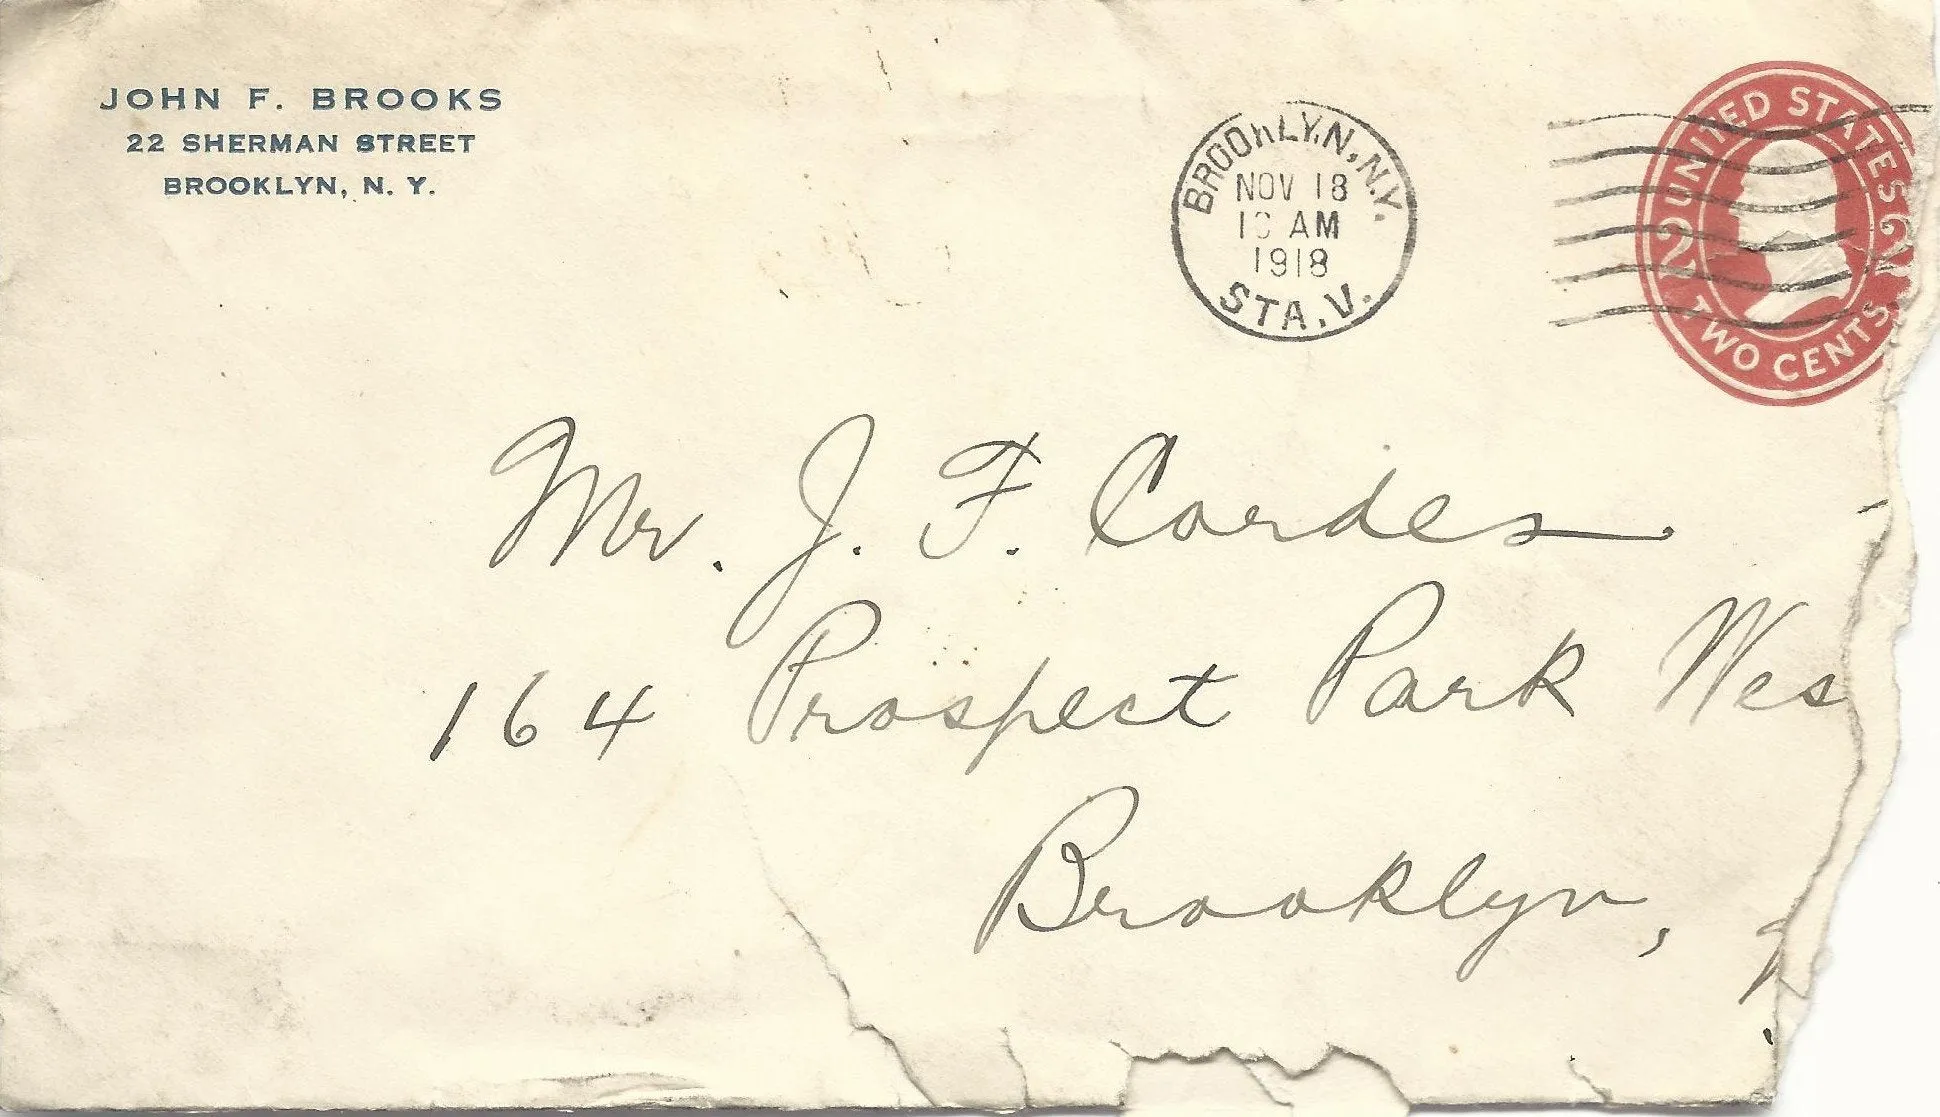 JOHN F. BROOKS
22 SHERMAN STREET
BROOKLYN, N. Y.
BROOKLYN, N.Y.
NOV 18
AM
1918
STA. V.
UNITED STATES
2 2
TWO CENTS
Mr. J. F. Cordes
164 Prospect Park Wes
Brooklyn,